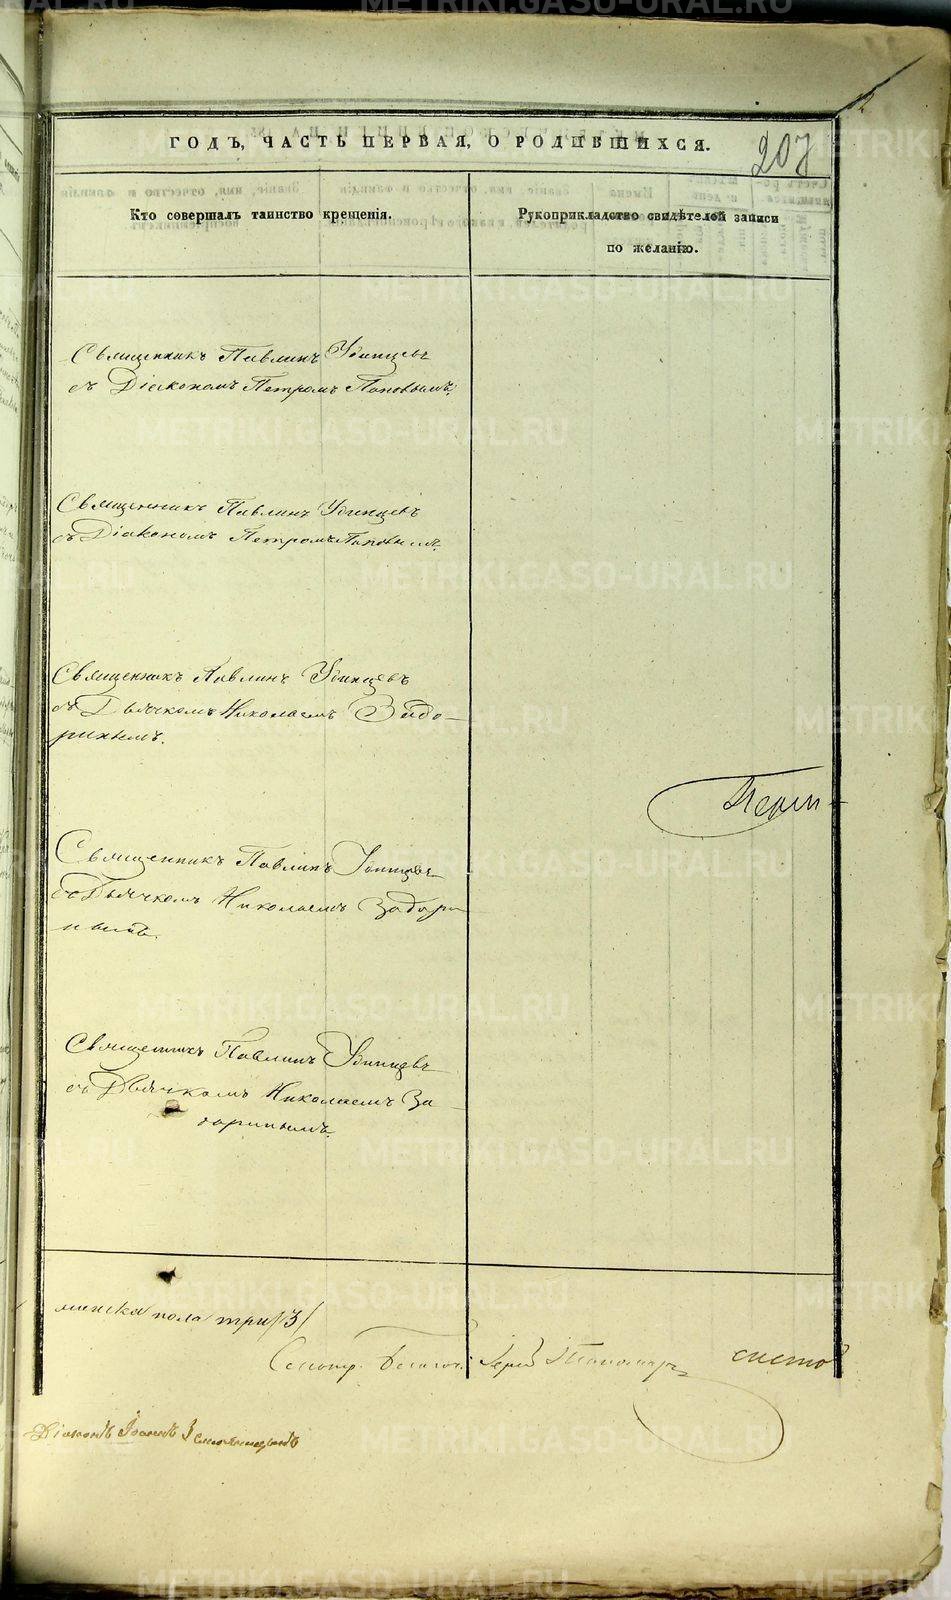 207
ГОДЪ, ЧАСТЬ ПЕРВАЯ, О РОДИВШИХСЯ.
Кто совершалъ таинство крещенія.
Рукоприкладство свидѣтелей записи
по желанію.
Священникъ Павлинъ Удинцевъ
съ Діакономъ Петромъ Поповымъ.
Священникъ Павлинъ Удинцевъ
съ Діакономъ Петромъ Поповымъ.
Священникъ Павлинъ Удинцевъ
съ Дьячкомъ Николаемъ Задо-
ринымъ.
Священникъ Павлинъ Удинцевъ
съ Дьячкомъ Николаемъ Задори
нымъ.
Священникъ Павлинъ Удинцевъ
съ Дьячкомъ Николаемъ За
доринымъ.
женска пола три /3/
Діаконъ Іоаннъ
METRIKI.GASO-URAL.RU